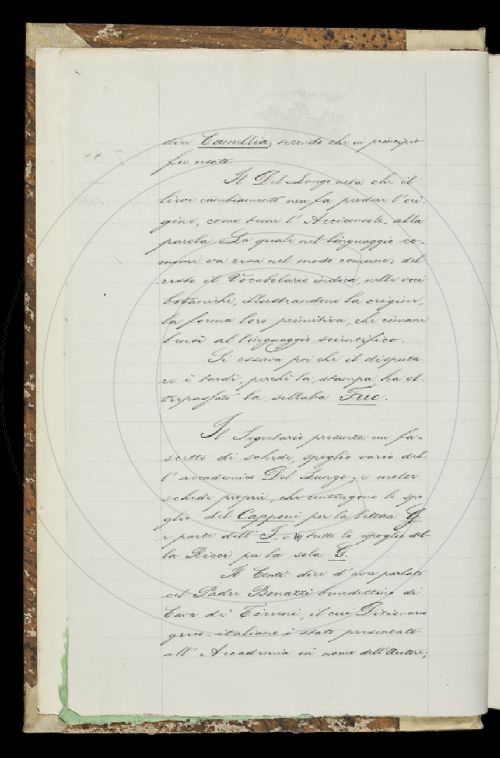 dire Camellia, secondo che in principio
fu usato.
Il Del Lungo nota che il
lieve cambiamento non fa perdere l'ori-
gine, come teme l'Arciconsolo, alla
parola. La quale nel linguaggio co-
mune va resa nel modo comune; del
resto il Vocabolario indica, nelle voci
botaniche, illustrandone la origine,
la forma loro primitiva, che rimane
bensì al linguaggio scientifico.
Si osserva poi che il disputa-
re è tardi, perchè la stampa ha ol-
trepassato la sillaba Fuc.
Il Segretario presenta un fa-
scetto di schede, spoglio vario dell'
accademico Del Lungo; e molte
schede proprie, che contengono lo spo-
glio del Capponi per la lettera G
e parte dell' F, e tutto lo spoglio del-
la Ricci per la sola G.
Il Conti dice d'aver parlato
col Padre Bonazzi benedettino di
Cava de' Tirreni, il cui Dizionario
greco-italiano è stato presentato
all' Accademia in nome dell'Autore;